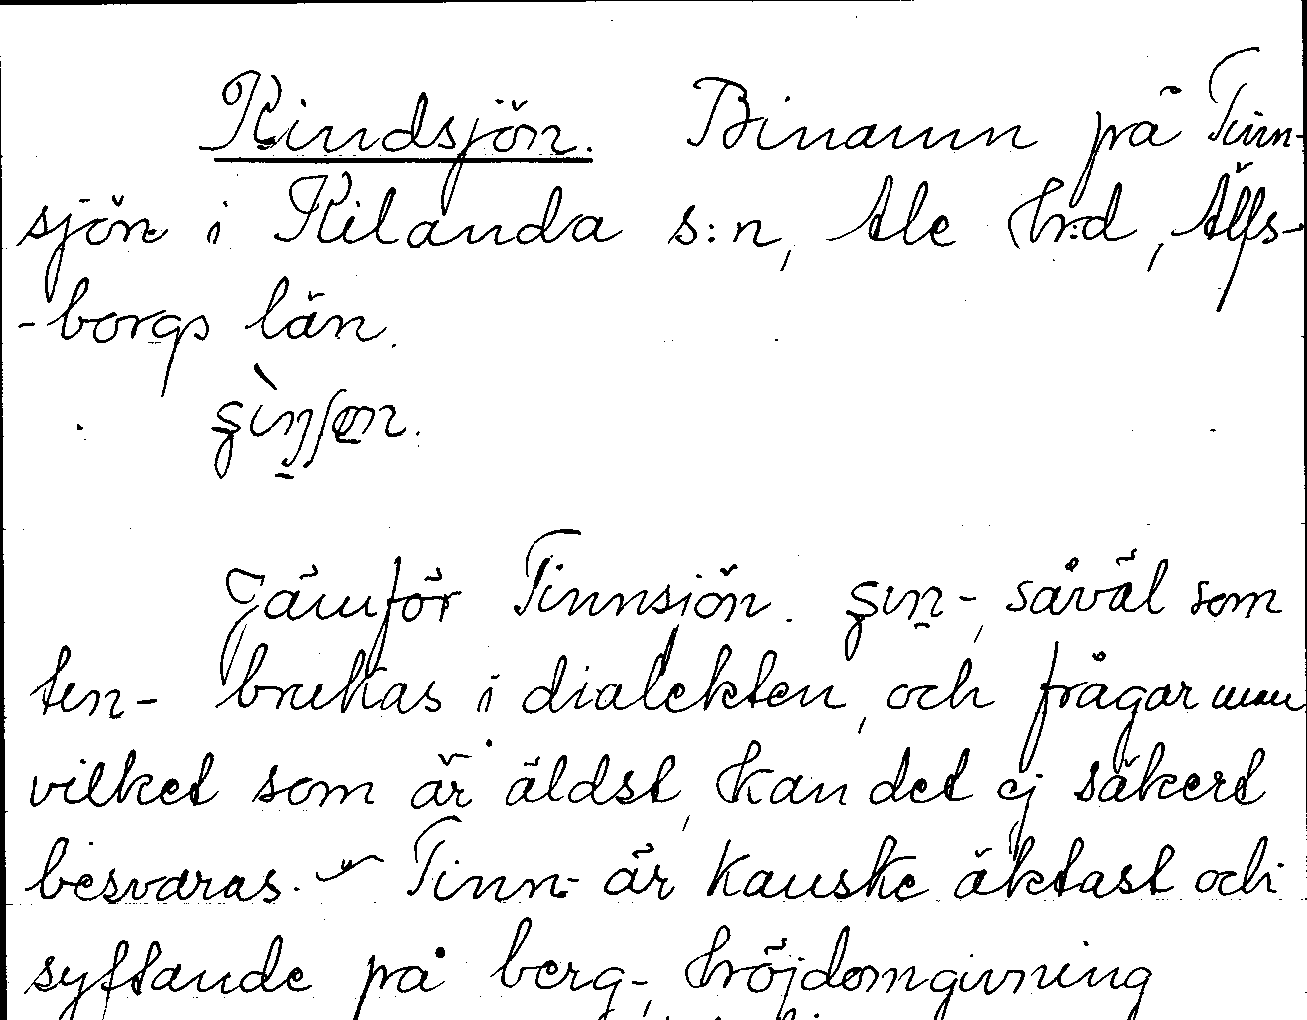 Kindsjön. Binamn på Tinn-
sjön i Kilanda s:n, Ale Hrd, Älfs-
-borgs län.
Jämför Tinnsjön. såväl som
ten- brukas i dialekten, och frågar man
vilket som är äldst, kan det ej säkert
besvaras. Tinn- är kanske äktast och
syftande på berg-, höjdomgivning